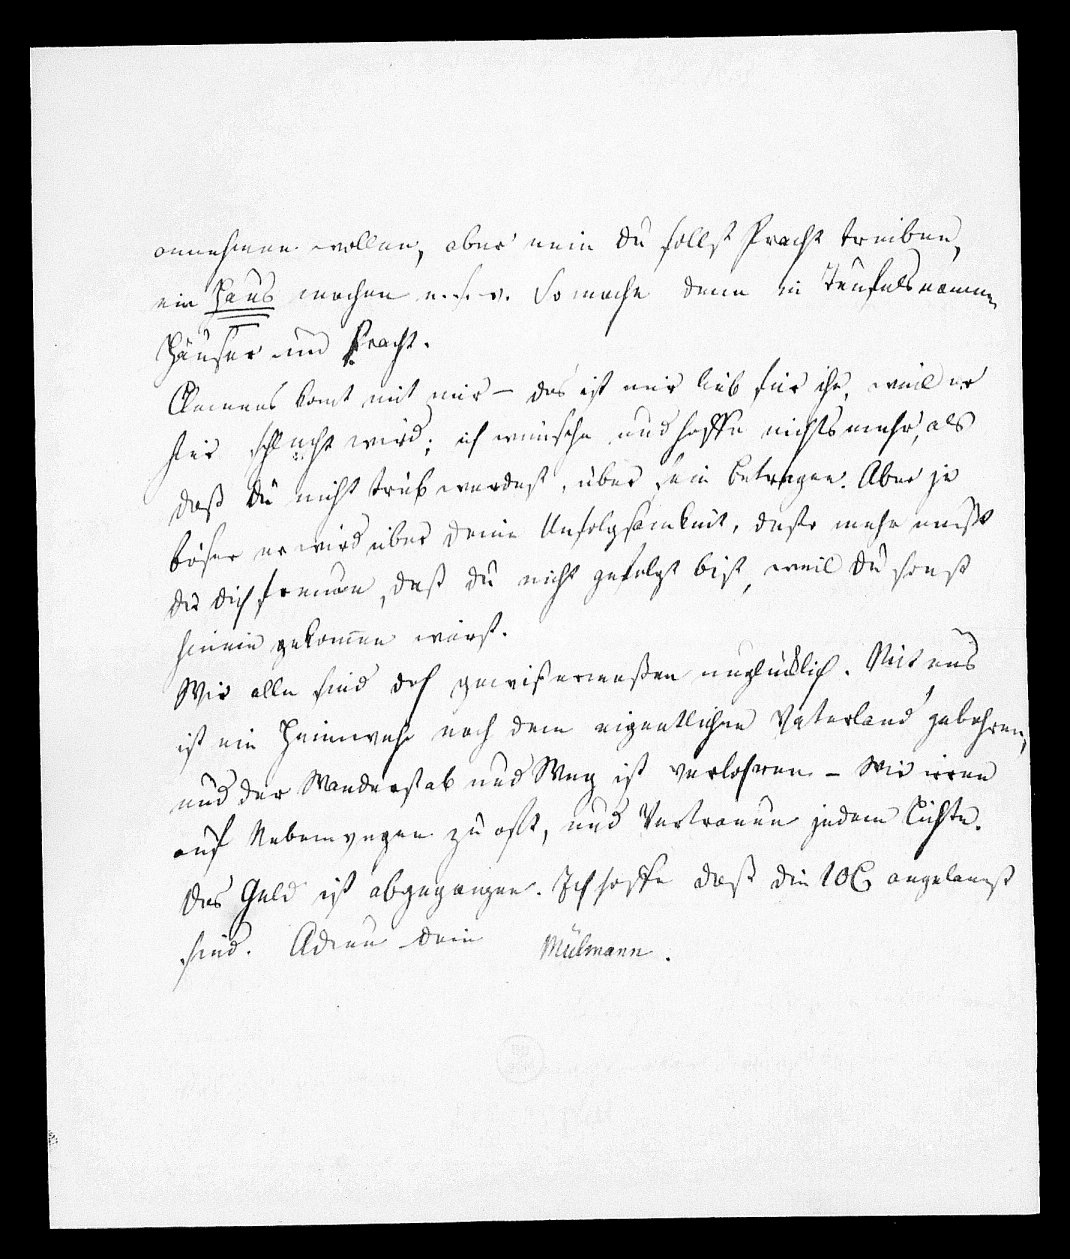 annehmen wollen, aber nein du sollst Pracht treiben,
ein Haus machen u.s.w. So mache denn in Teufelsnamen
Häuser und Pracht.
Clemens komt mit mir – das ist mir lieb für ihn, weil er
hier schlecht wird; ich wünsche und hoffe nichts mehr, als
daß du nicht trüb werdest, über sein Betragen. Aber je
böser er wird über deine Unfolgsamkeit, desto mehr must
du dich freuen, daß du nicht gefolgt bist, weil du sonst
hinein gekommen wärst.
Wir alle sind doch gewißermaßen unglücklich. Mit uns
ist ein Heimweh nach dem eigentlichen Vaterland gebohren,
und der Wanderstab und Weg ist verlohren – Wir irren
auf Nebenwegen zu oft, und Vertrauen jedem Lichte.
Das Geld ist abgegangen. Ich hoffe daß die 10 C angelangt
sind. Adieu dein Mülmann.